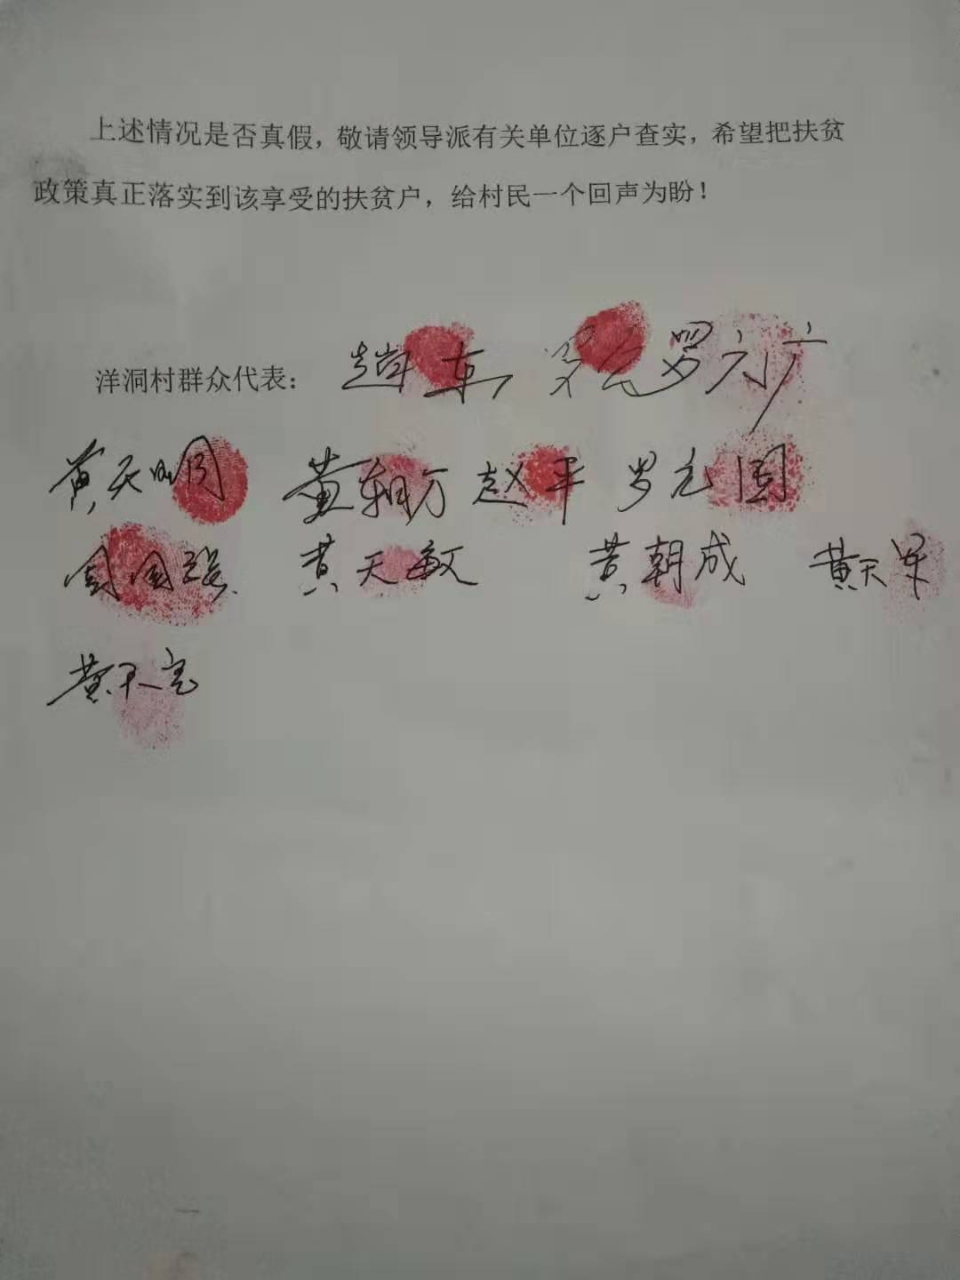 上述情况是否真假，敬请领导派有关单位逐户查实，希望把扶贫
政策真正落实到该享受的扶贫户，给村民一个回声为盼！
洋洞村群众代表：
黄天明 黄朝万 赵平 罗元国
黄天敏 黄朝成 黄天军
黄天亮